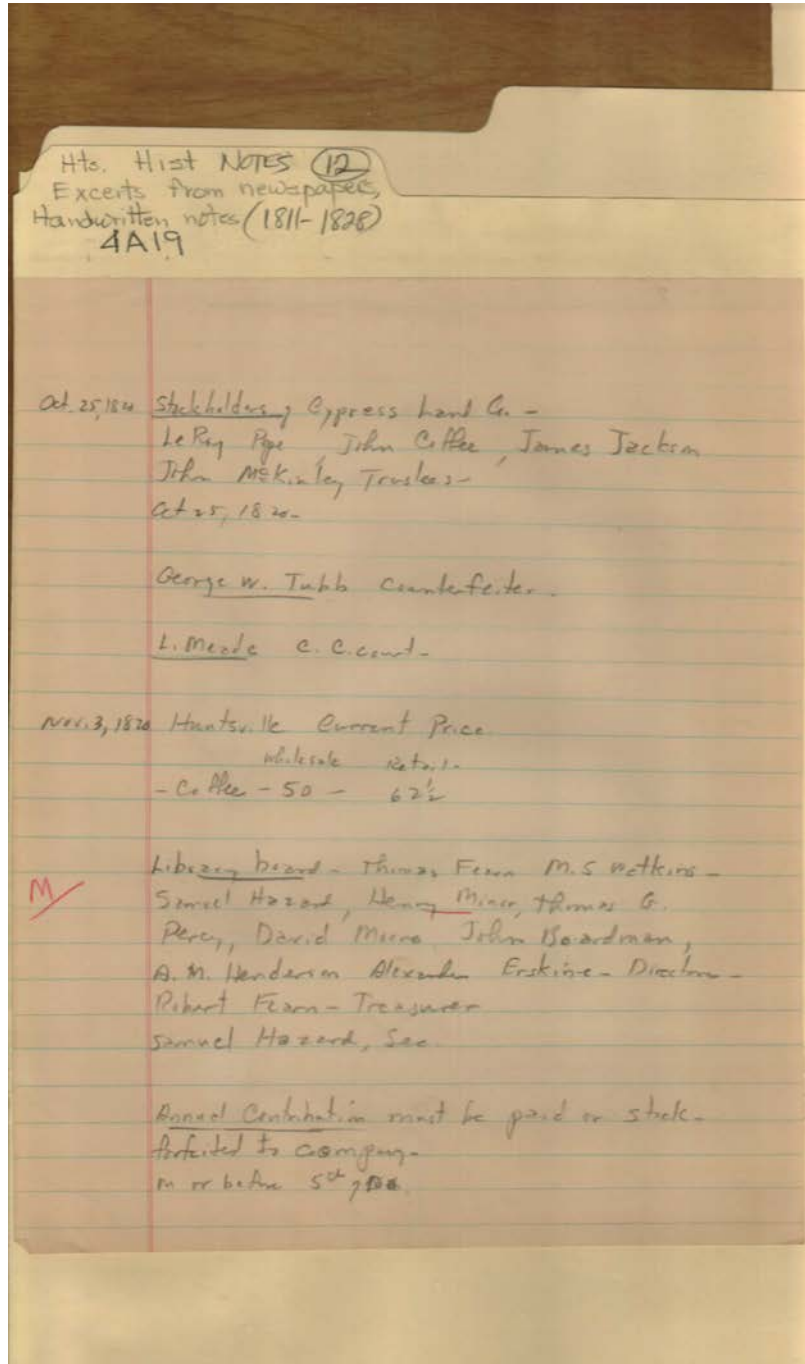 Hts. Hist NOTES 12
Excerts from newspapers,
Handwritten notes (1811-1828)
4A19
Oct. 25, 1820 Stockholders, Cypress Land Co. -
LeRoy Pope, John Coffee, James Jackson
John McKinley Trustees -
Oct 25, 1820 -
George W. Tubb Counterfeiter.
L. Meade C. C. court -
Nov. 3, 1820 Huntsville Current Price
wholesale Retail -
- Coffee - 50 - 62½
Library board - Thomas Fearn M. S Watkins -
M Samuel Hazard, Henry Minor, Thomas G.
Percy, David Moore John Boardman,
A. M. Henderson Alexander Erskine - Directors -
Robert Fearn - Treasurer
Samuel Hazard, Sec.
Annual Contribution must be paid or stock -
forfeited to company -
on or before 5th